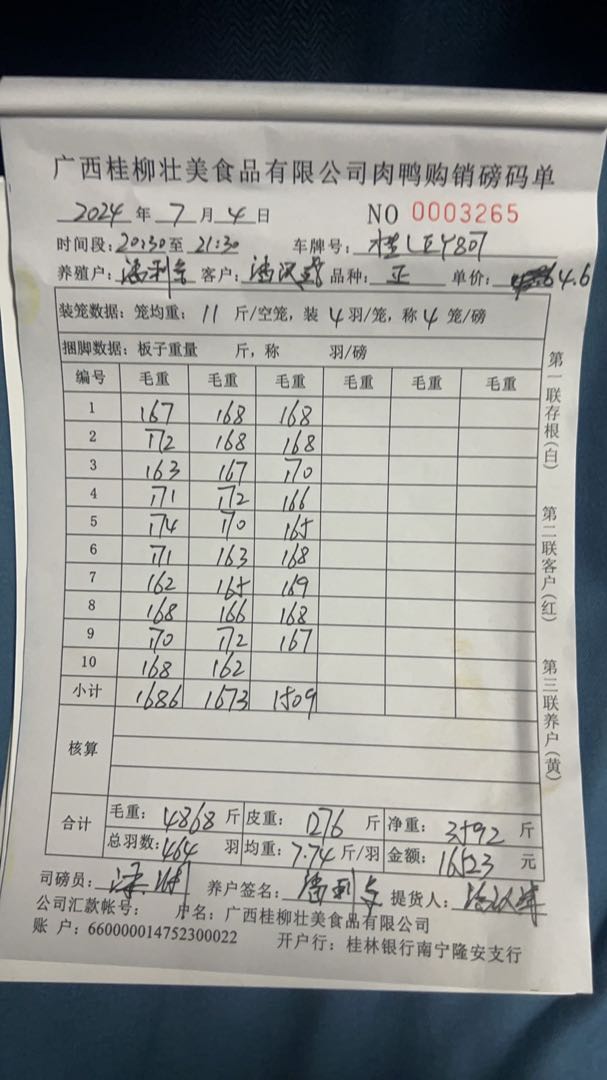 广西桂柳壮美食品有限公司肉鸭购销磅码单
2024 年 7 月 4 日 NO 0003265
时间段: 20:30 至 21:30 车牌号: 桂LEY807
养殖户: 潘利 客户: 潘汉 品种: 正 单价: 4.6
装笼数据: 笼均重: 11 斤/空笼, 装 4 羽/笼, 称 4 笼/磅
捆脚数据: 板子重量 斤, 称 羽/磅
编号 毛重 毛重 毛重 毛重 毛重 毛重
1 167 168 168
2 172 168 168
3 163 167 170
4 171 172 166
5 174 170 165
6 171 163 168
7 162 165 169
8 168 166 168
9 170 172 167
10 168 162
小计 1686 1673 1509
核算
合计 毛重: 4868 斤 皮重: 1276 斤 净重: 3592 斤
总羽数: 464 羽 均重: 7.74 斤/羽 金额: 16523 元
司磅员: 养户签名: 潘利 提货人:
公司汇款帐号: 户名: 广西桂柳壮美食品有限公司
账 户: 660000014752300022 开户行: 桂林银行南宁隆安支行
第一联存根(白)
第二联客户(红)
第三联养户(黄)